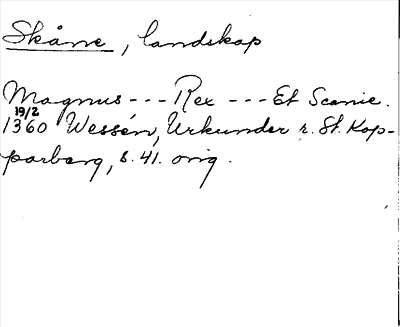 Skåne, landskap
Magnus --- Rex --- Et Scanie.
19/2
1360 Wessén, Urkunder r. St. Kop-
parberg, s. 41. orig.